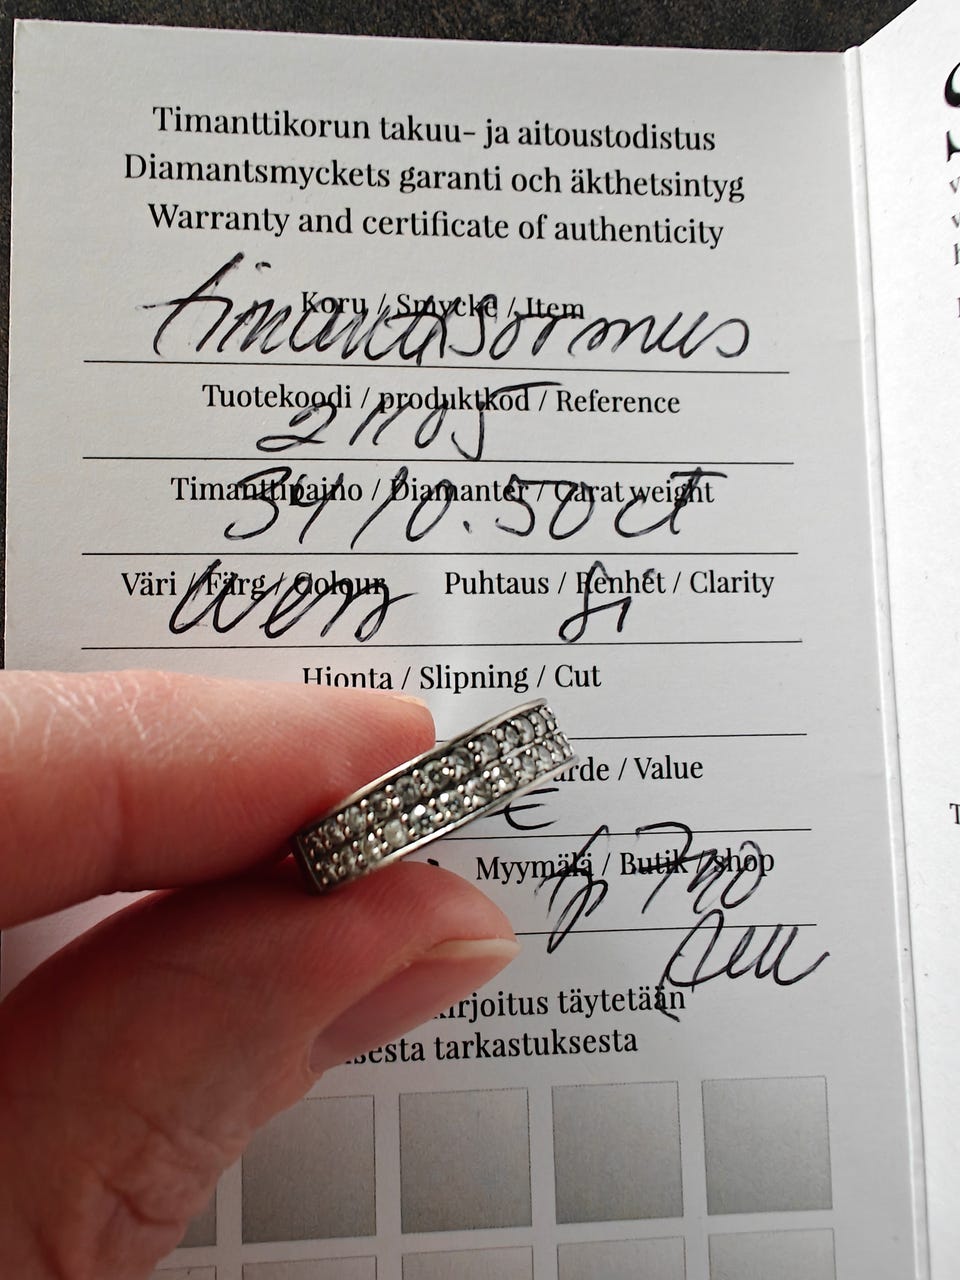 Timanttikorun takuu- ja aitoustodistus
Diamantsmyckets garanti och äkthetsintyg
Warranty and certificate of authenticity
Koru / Smycke / Item
timanttisormus
Tuotekoodi / produktkod / Reference
Timanttipaino / Diamanter / Carat weight
34/0.50 ct
Väri / Färg / Colour Puhtaus / Renhet / Clarity
Si
Hionta / Slipning / Cut
/ Value
€
Myymälä / Butik / shop
täytetään
tarkastuksesta